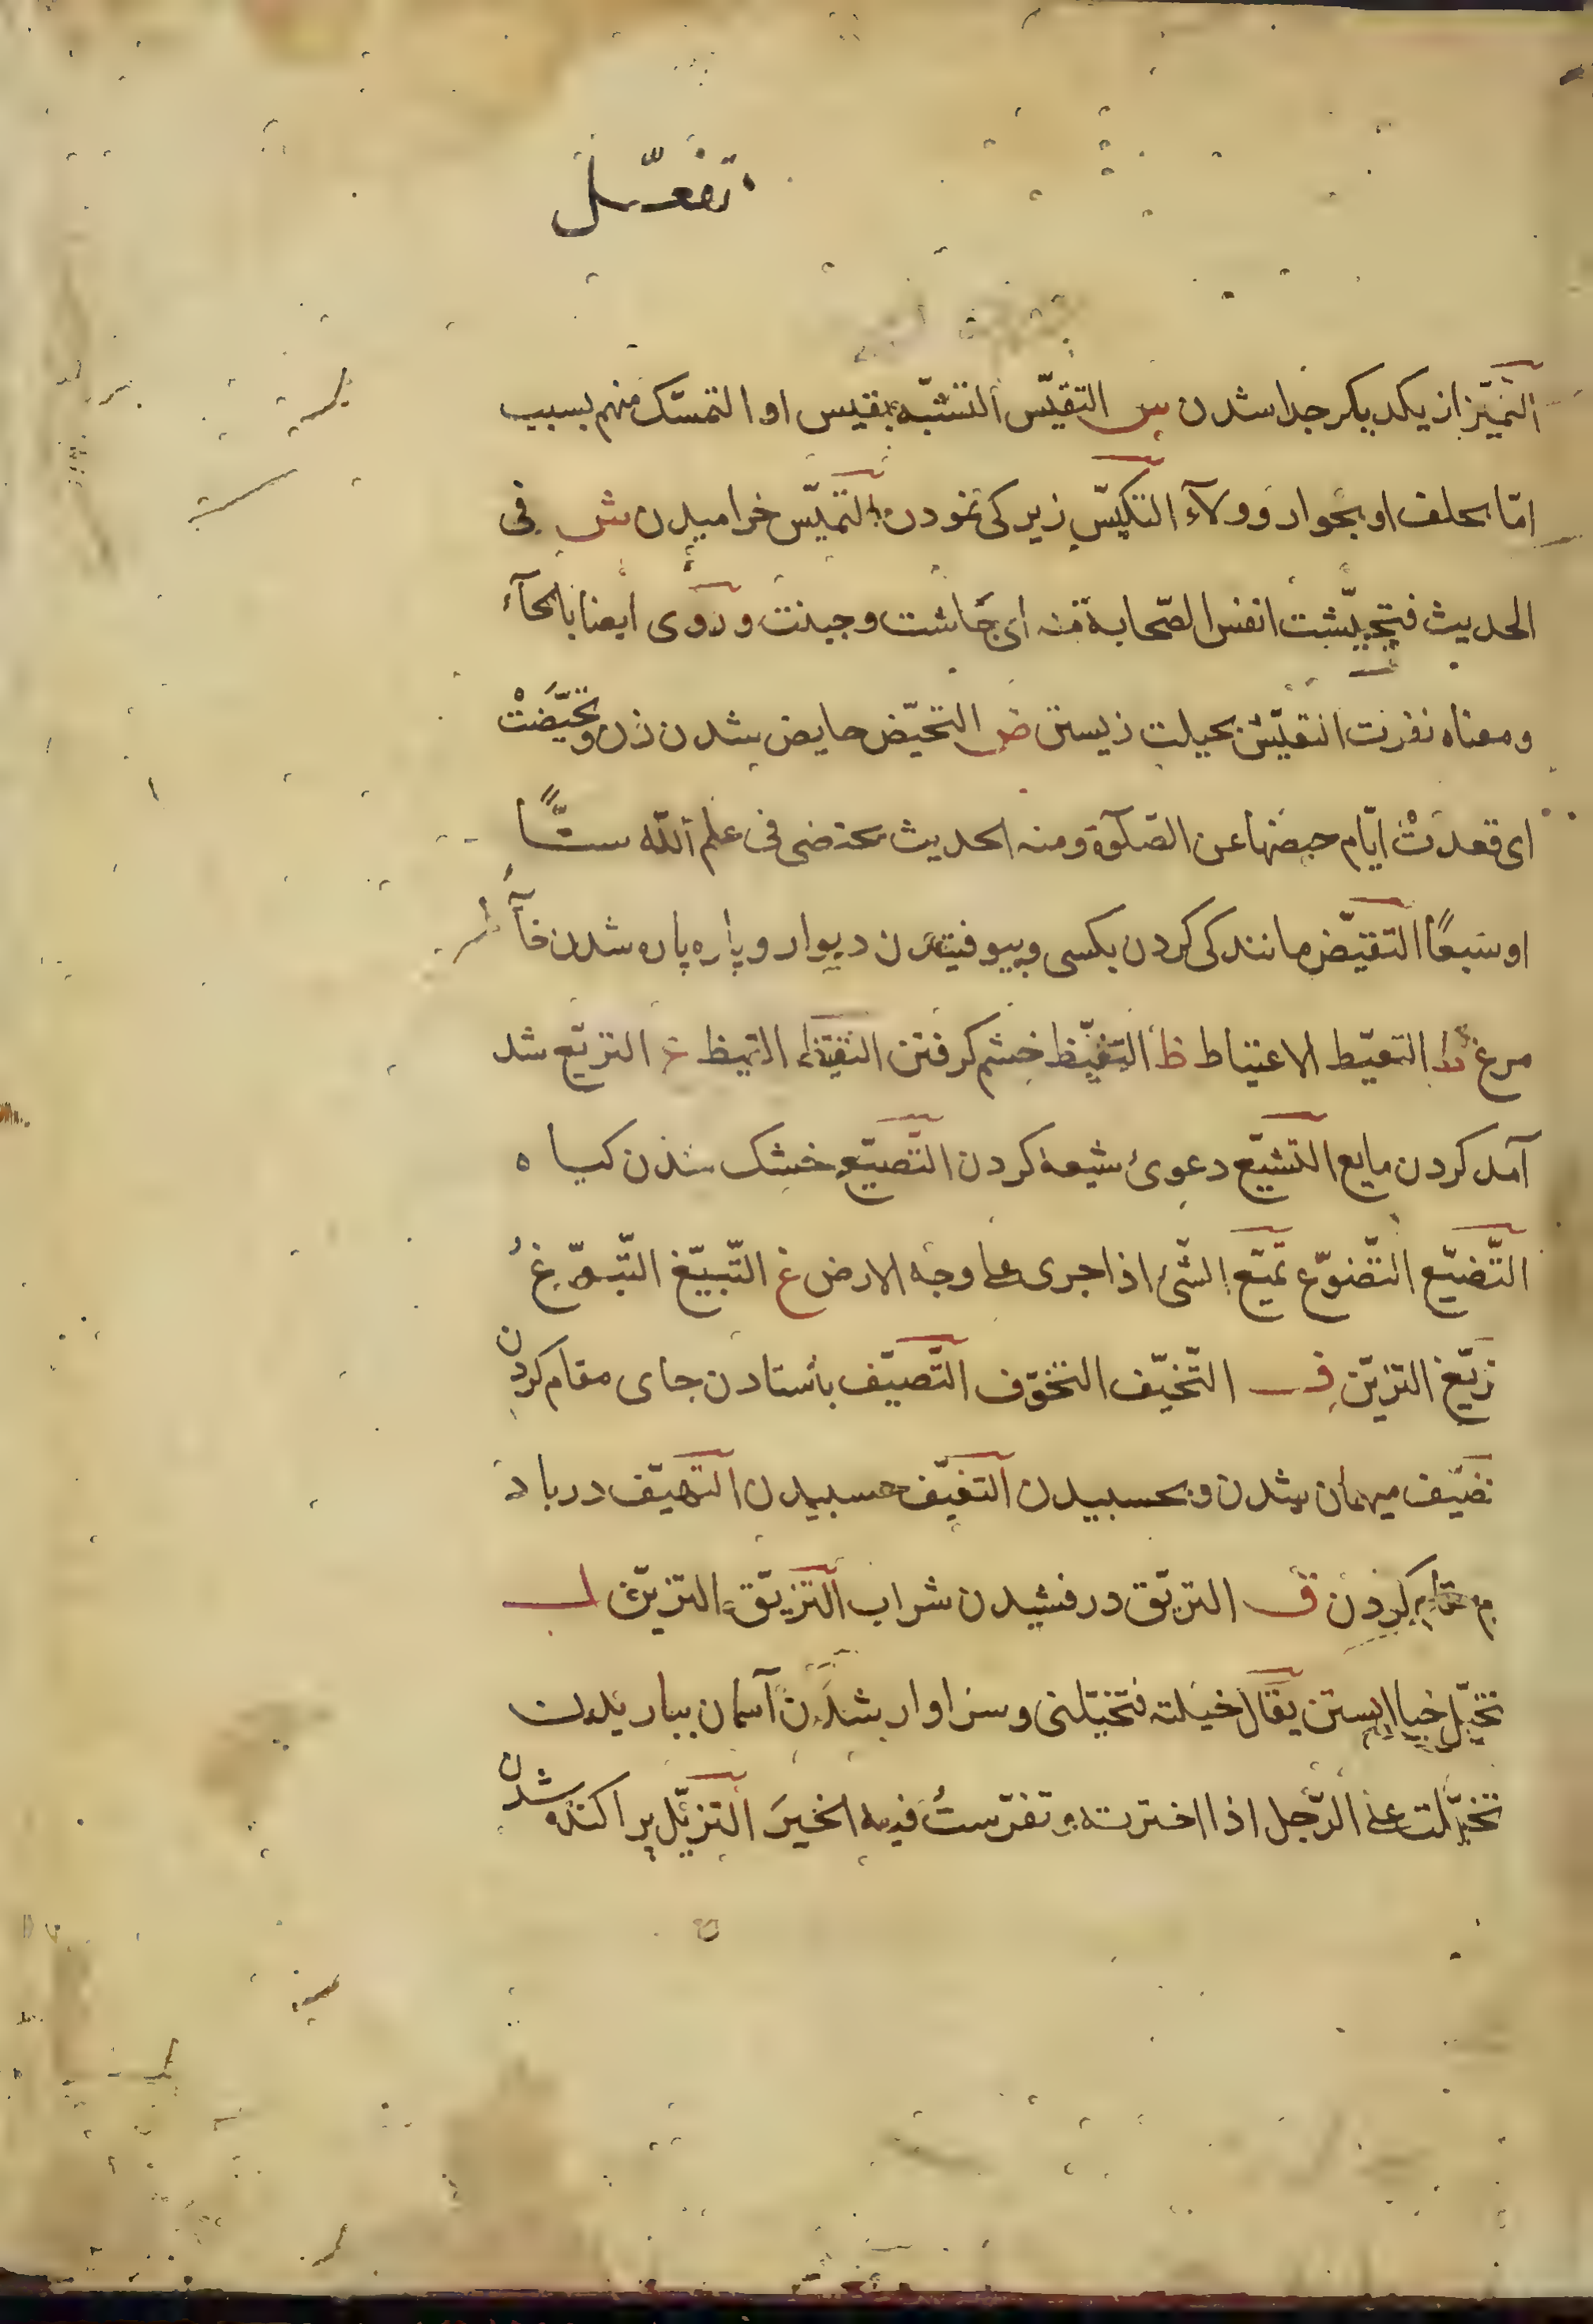 تفعّل
التميّز از یکدیکر جدا شدن س التقیّس التشبّه بقیس او التمسّک منهم بسبب
امّا بحلف او بجوار و ولآء التکیّس زیرکی نمودن التمیّس خرامیدن ش فی
الحدیث فتجیّشت انفس الصّحابة منه ای جاشت و جبنت و روی ایضا بالحآء
و معناه نفرت التقیّش بحیلت زیستن ض التحیّض حایض شدن زن و تحیّضتْ
ای قعدتْ ایّام حیضها عن الصّلوة و منه الحدیث تحیّضی فی علم اللّه ستًّا
او سبعًا التقیّض مانندکی کردن بکسی و بیوفتیدن دیوار و پاره پاره شدن خآ
مرغ ط التعیّط الاعتیاط ظ التغیّظ خشم کرفتن التقیّظ القیظ ع التریّع شد
آمد کردن مایع التشیّع دعوی شیعة کردن التّصیّع خشک شدن کیاه
التّضیّع التّضوّع تمیّع الشّئ اذا جری علی وجه الارض غ التّبیّغ التّبوّغ
تزیّغ التزیّن ف التّخیّف التخوّف التّصیّف بأستادن جای مقام کردن
تضیّف میهمان شدن و بحسبیدن التغیّف حسبیدن التّهیّف در باد
مقام کردن ق التریّق درفشیدن شراب التزیّق التزیّن ل
تخیّل خیا بستن یقال خیلته فتخیّلنی و سزاوار شدن آسمان بباریدن
تخیّلت علی الرّجل اذا اخترته و تفرّستُ فیه الخیرَ التزیّل پراکنده شدن